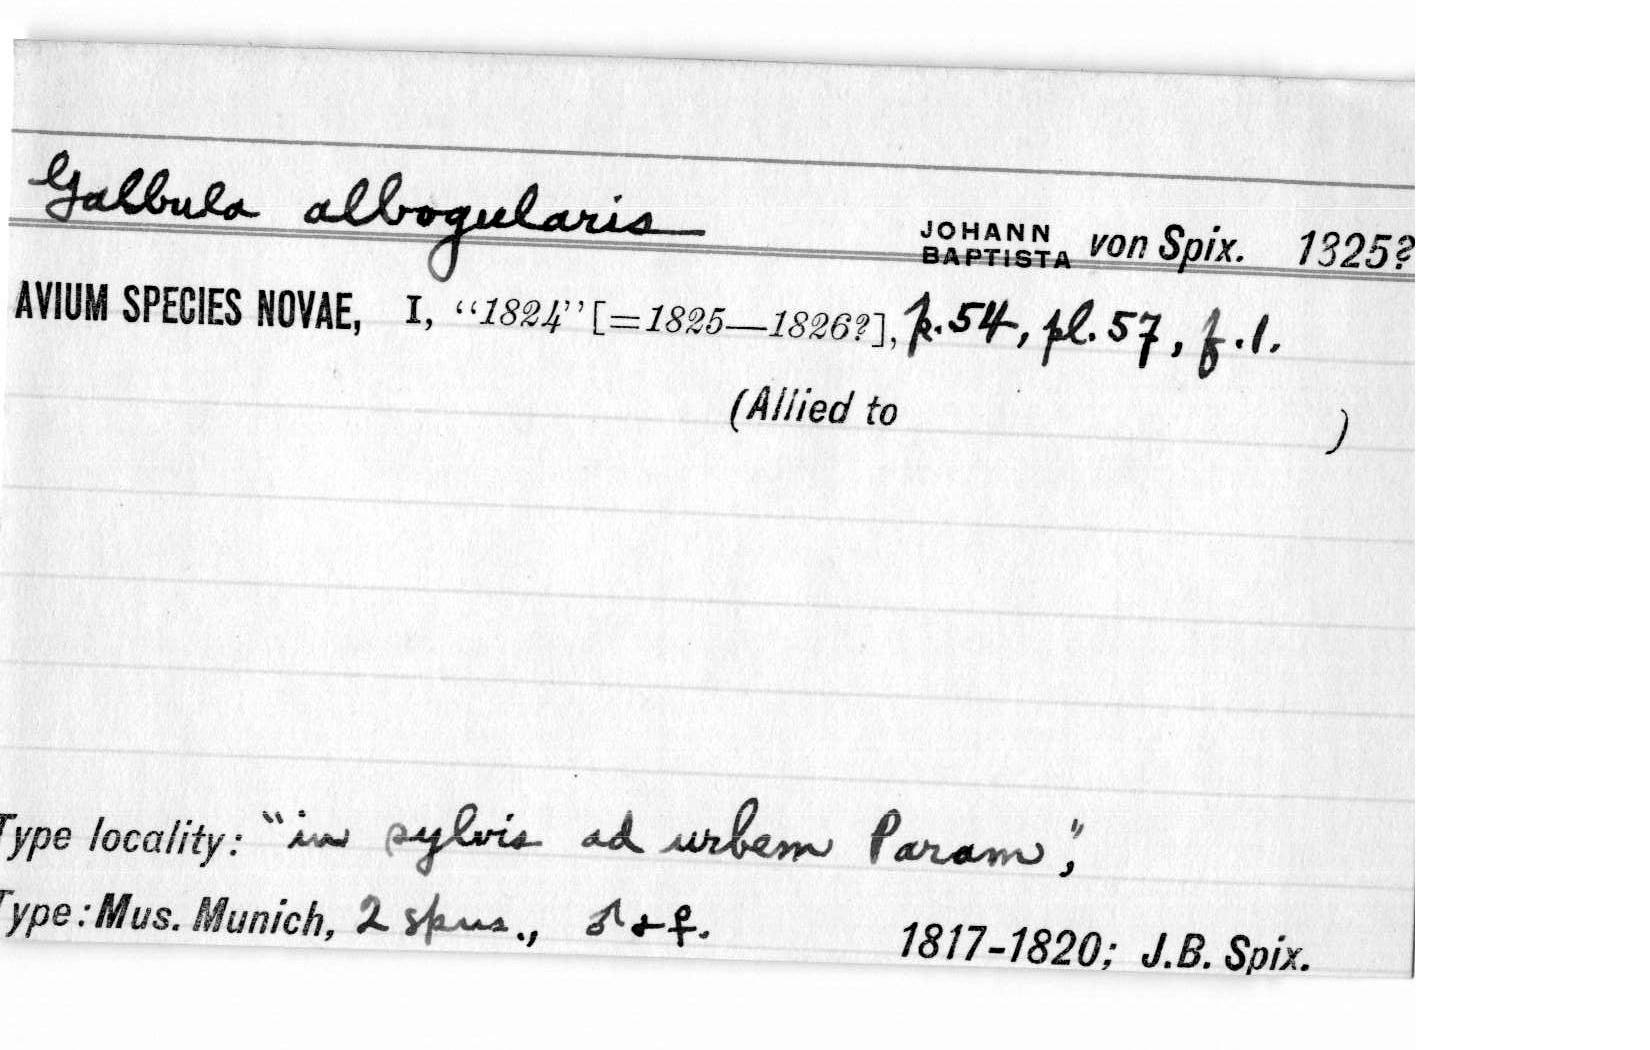 Galbula albogularis JOHANN BAPTISTA von Spix. 1825?
AVIUM SPECIES NOVAE, I, "1824" [=1825—1826?], p. 54, pl. 57, f. 1.
(Allied to )
Type locality: "in sylvis ad urbem Param",
Type: Mus. Munich, 2 spms., ♂ + ♀. 1817-1820; J.B. Spix.